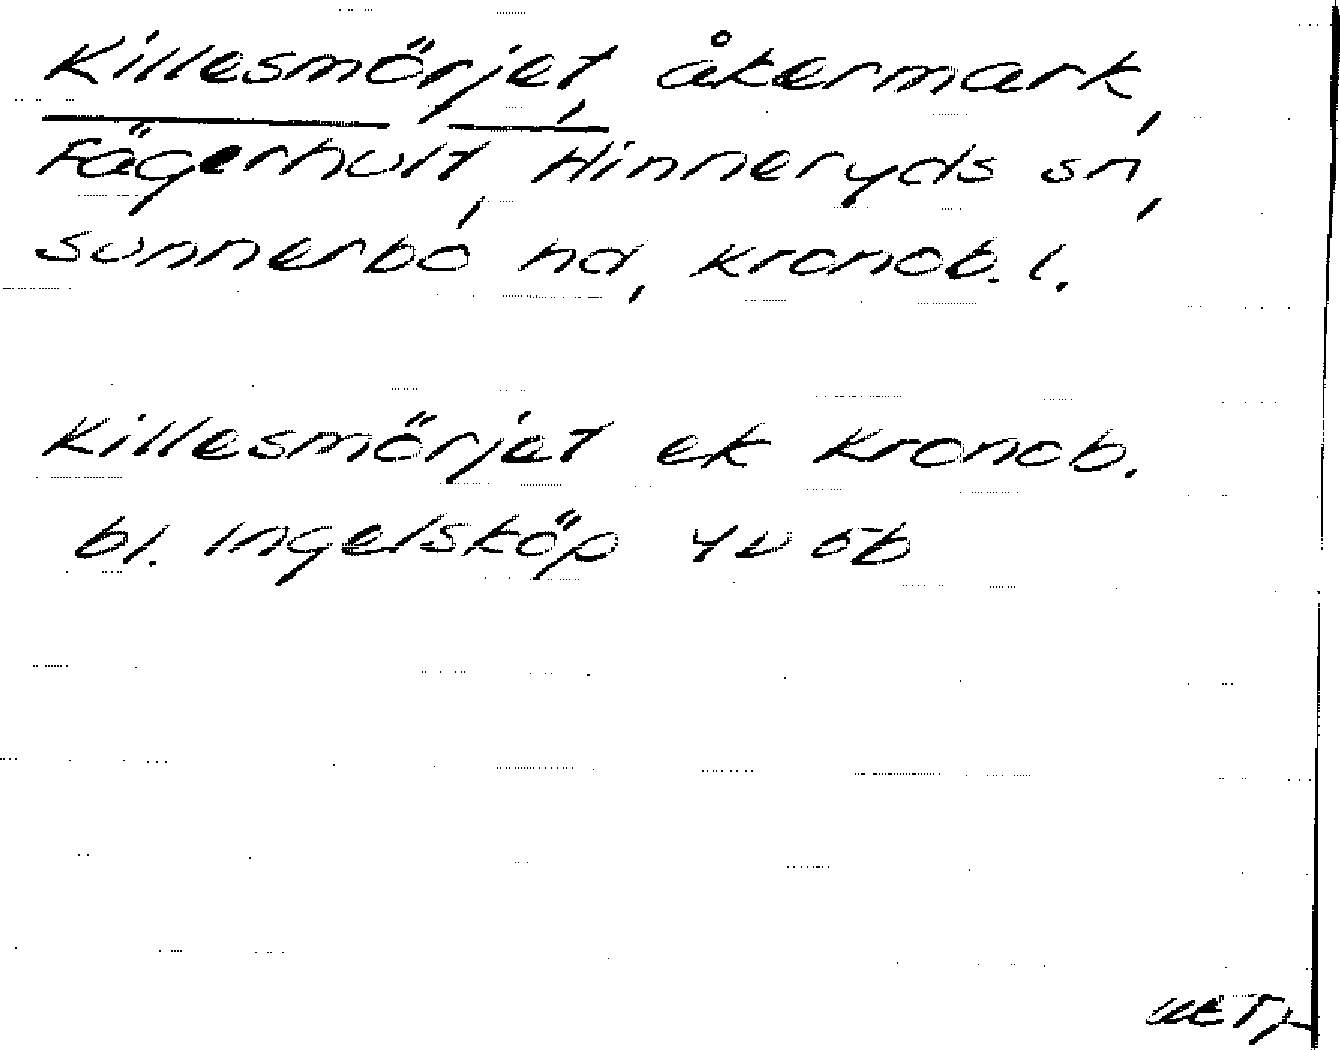 Killesmörjet, åkermark,
Fägerhult, Hinneryds sn,
Sunnerbo hd, Kronob. l.
Killesmörjet ek Kronob.
bl. Ingelsköp 4D 5b